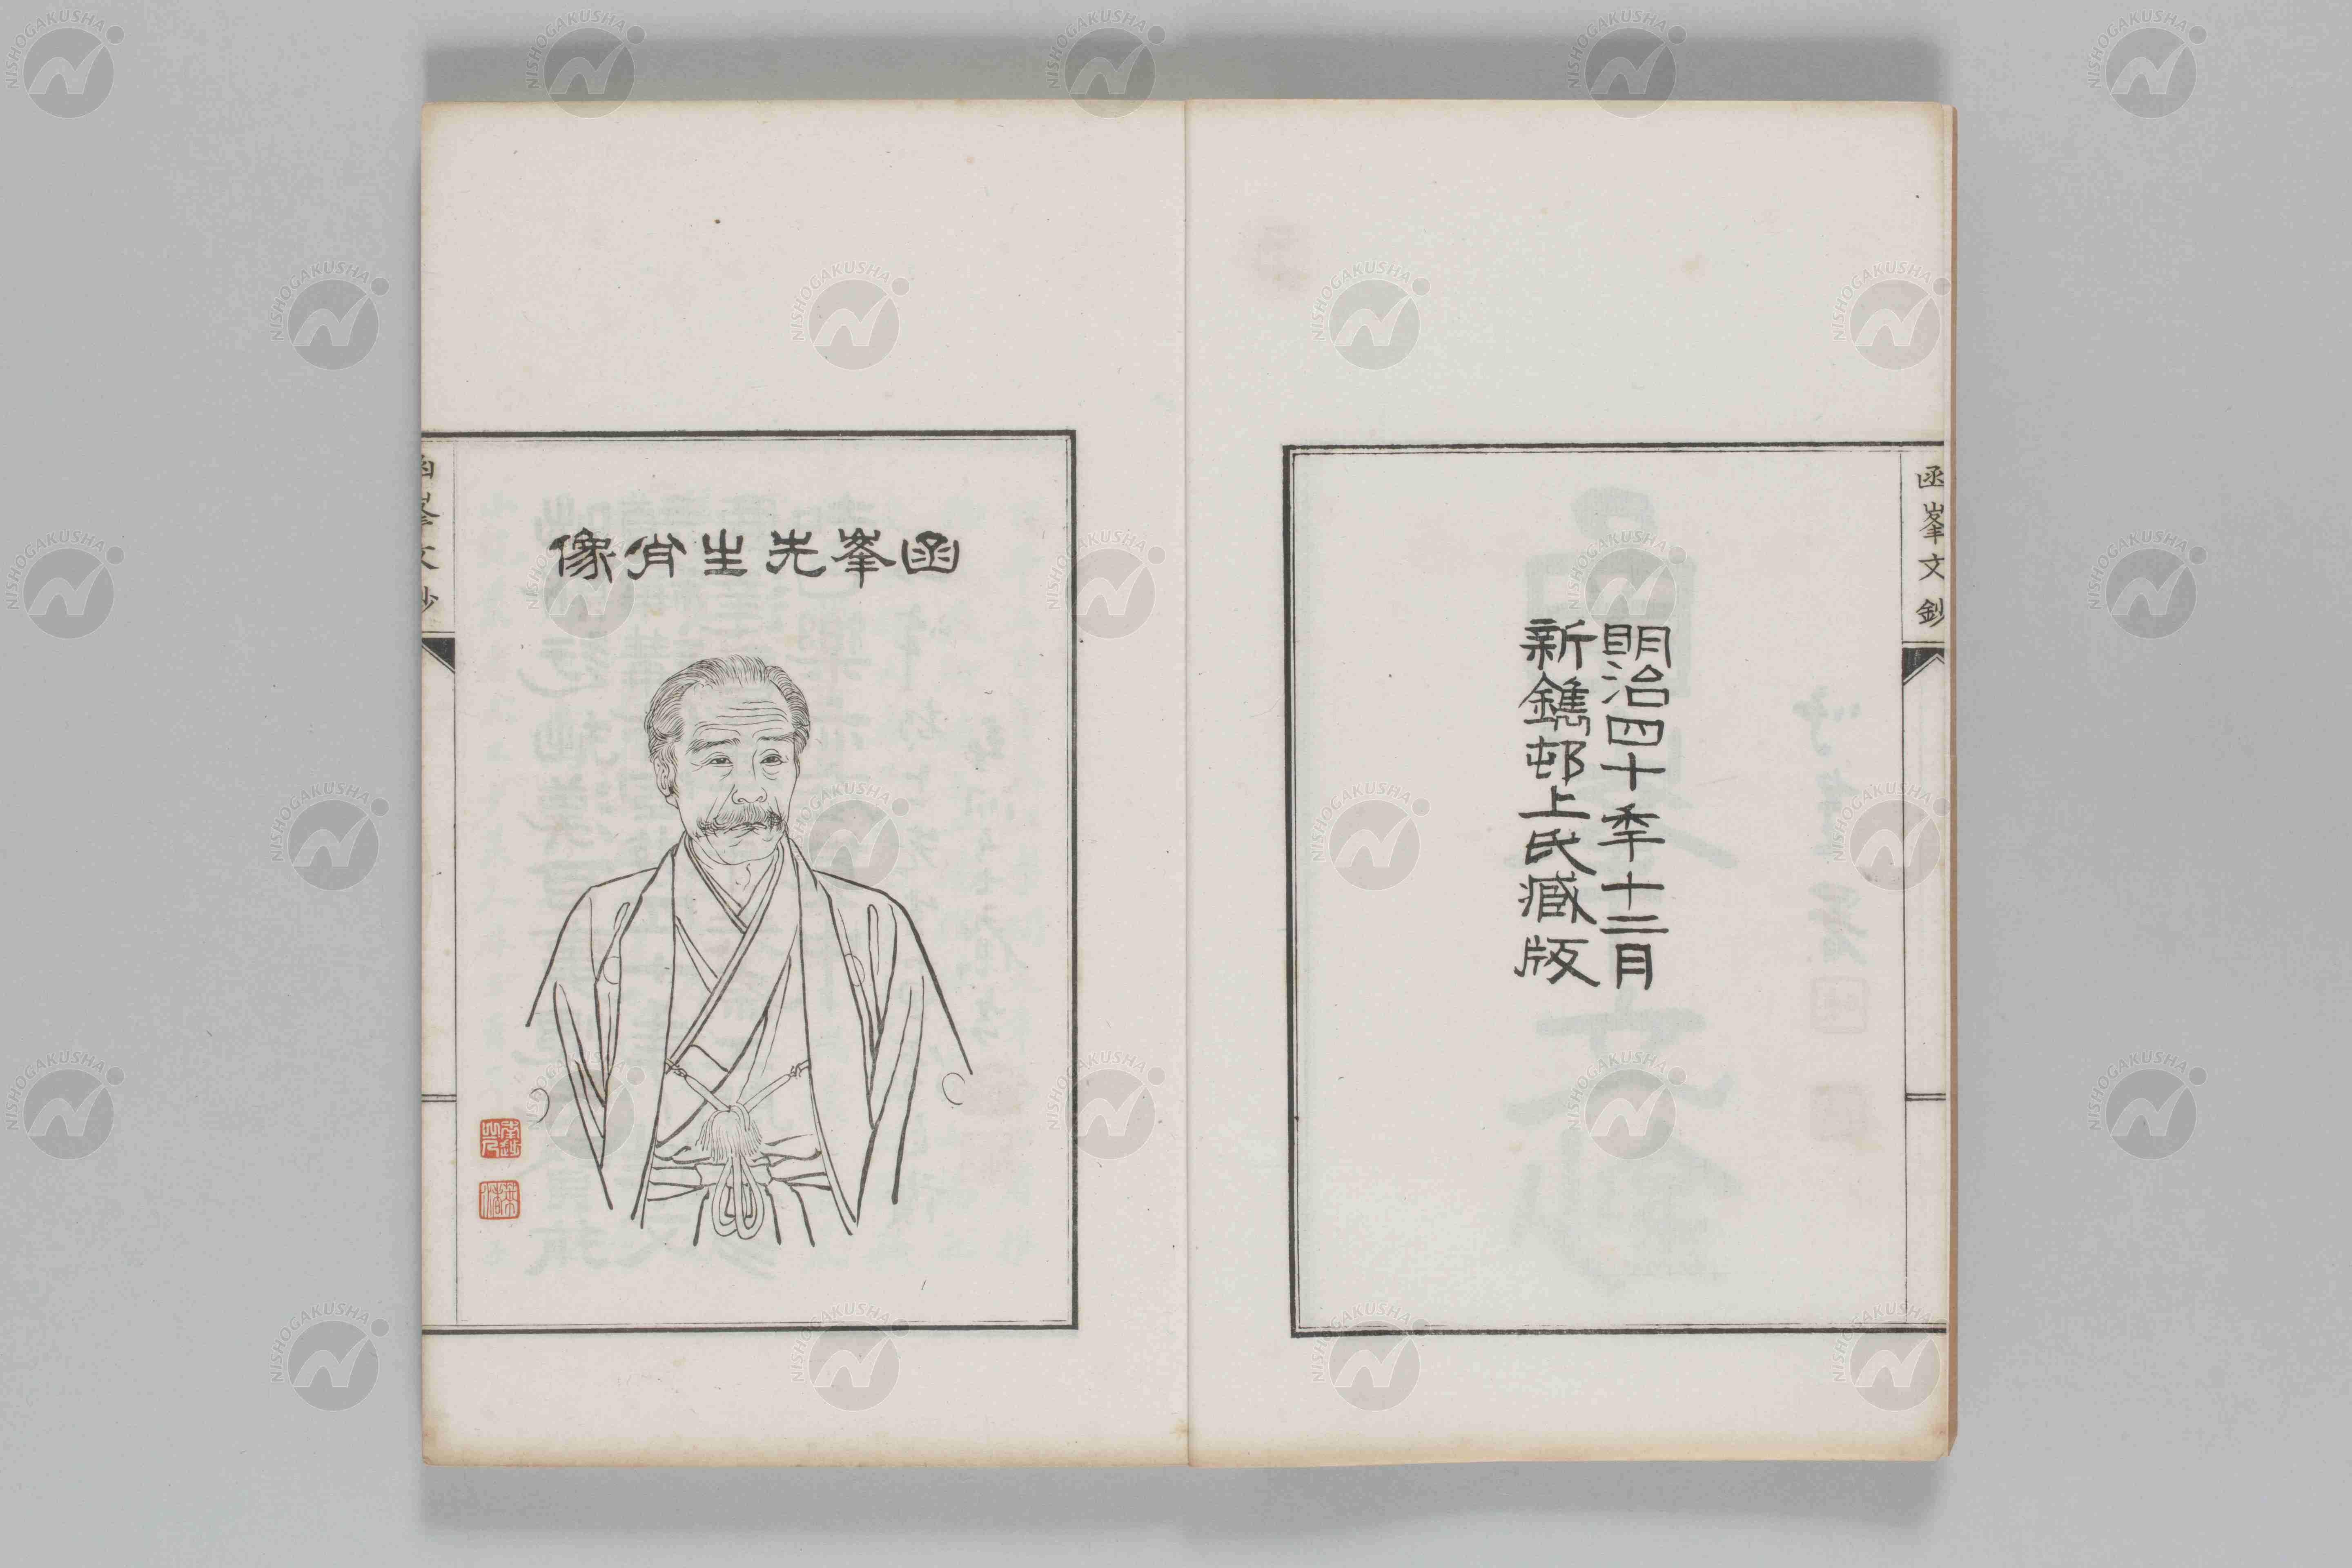 函峯文鈔
明治四十秊十二月
新鐫邨上氏臧版
函峯先生肖像
函峯文鈔
NISHOGAKUSHA